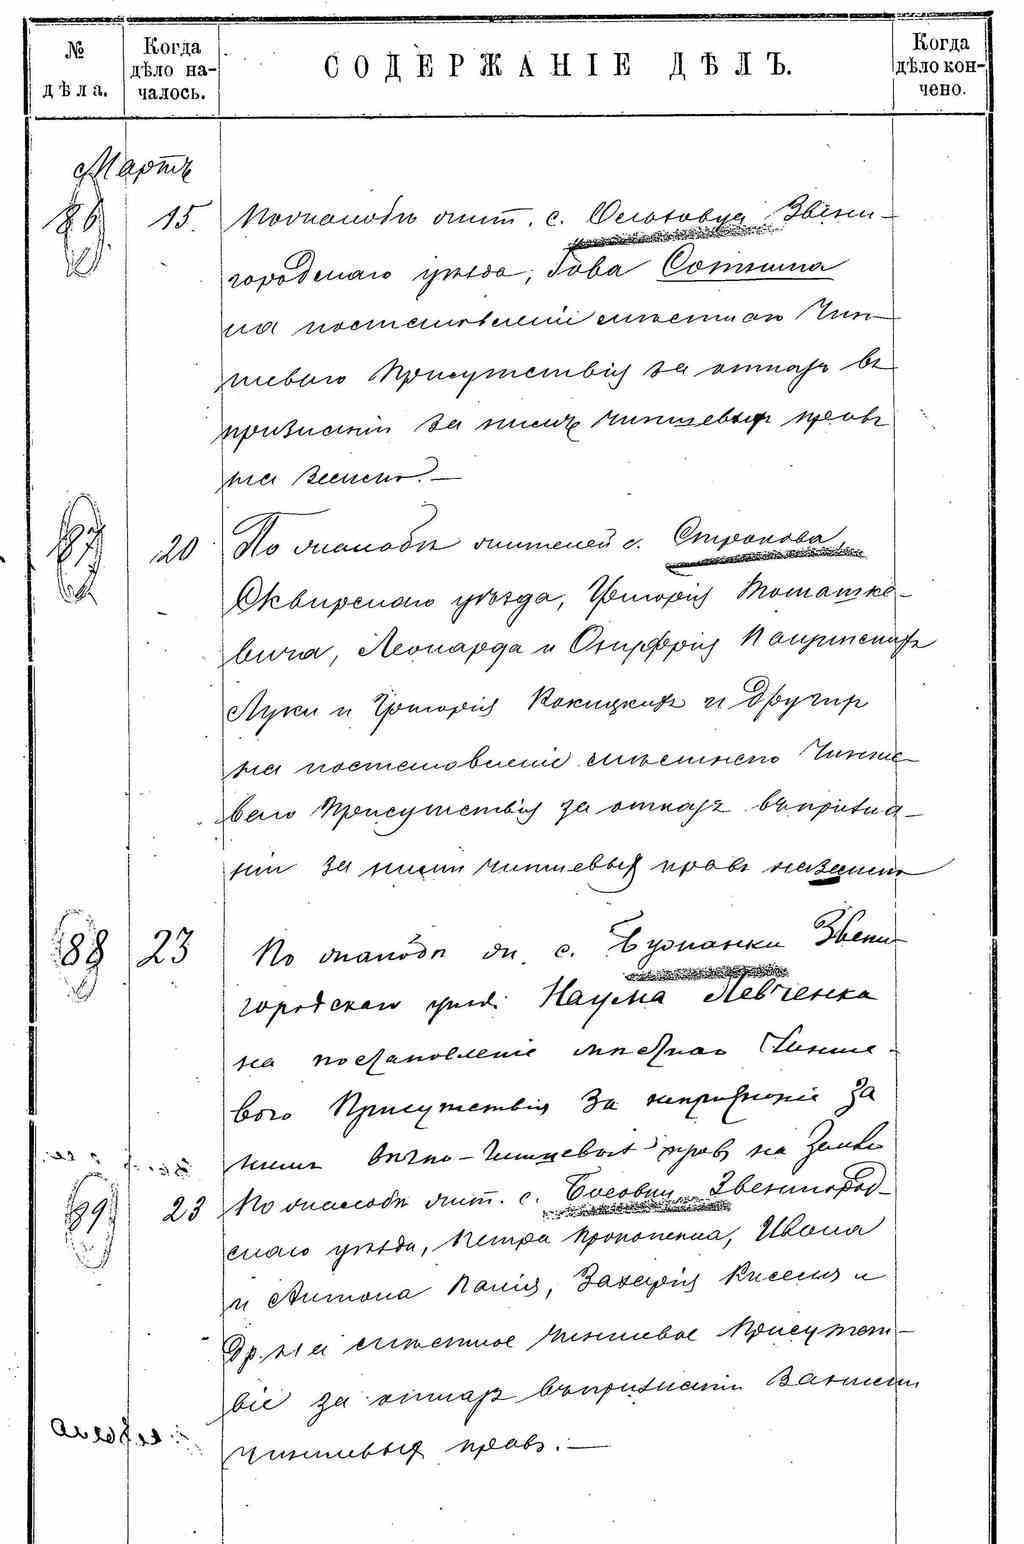 № дѣла.
Когда дѣло началось.
СОДЕРЖАНІЕ ДѢЛЪ.
Когда дѣло кончено.
Мартъ
86 15. По жалобѣ жит. с. Звени-
городскаго уѣзда,
на постановленіе мѣстнаго Чин-
шеваго Присутствія за отказъ въ
признаніи за нимъ чиншевыхъ правъ
на землю.—
87 20 По жалобѣ жителей с. Строкова,
Сквирскаго уѣзда, Григорія Томашке-
вича, Леонарда и Онуфрія
Луки и Григорія и другихъ
на постановленіе мѣстнаго Чинше-
ваго Присутствія за отказъ въ призна-
ніи за ними чиншевыхъ правъ на землю
88 23 По жалобѣ жит. с. Бужанки Звени-
городскаго уѣзд. Наума Левченка
на постановленіе мѣстнаго Чинше-
вого Присутствія за непризнаніе за
нимъ вѣчно-чиншевыхъ правъ на землю
89 23 По жалобѣ жит. с. Босовки Звенигород-
скаго уѣзда, Петра Прокопенка, Ивана
и Антона Палія, Захарія Киселя и
др. на мѣстное чиншевое Присутст-
віе за отказъ въ признаніи за ними
чиншевыхъ правъ.—